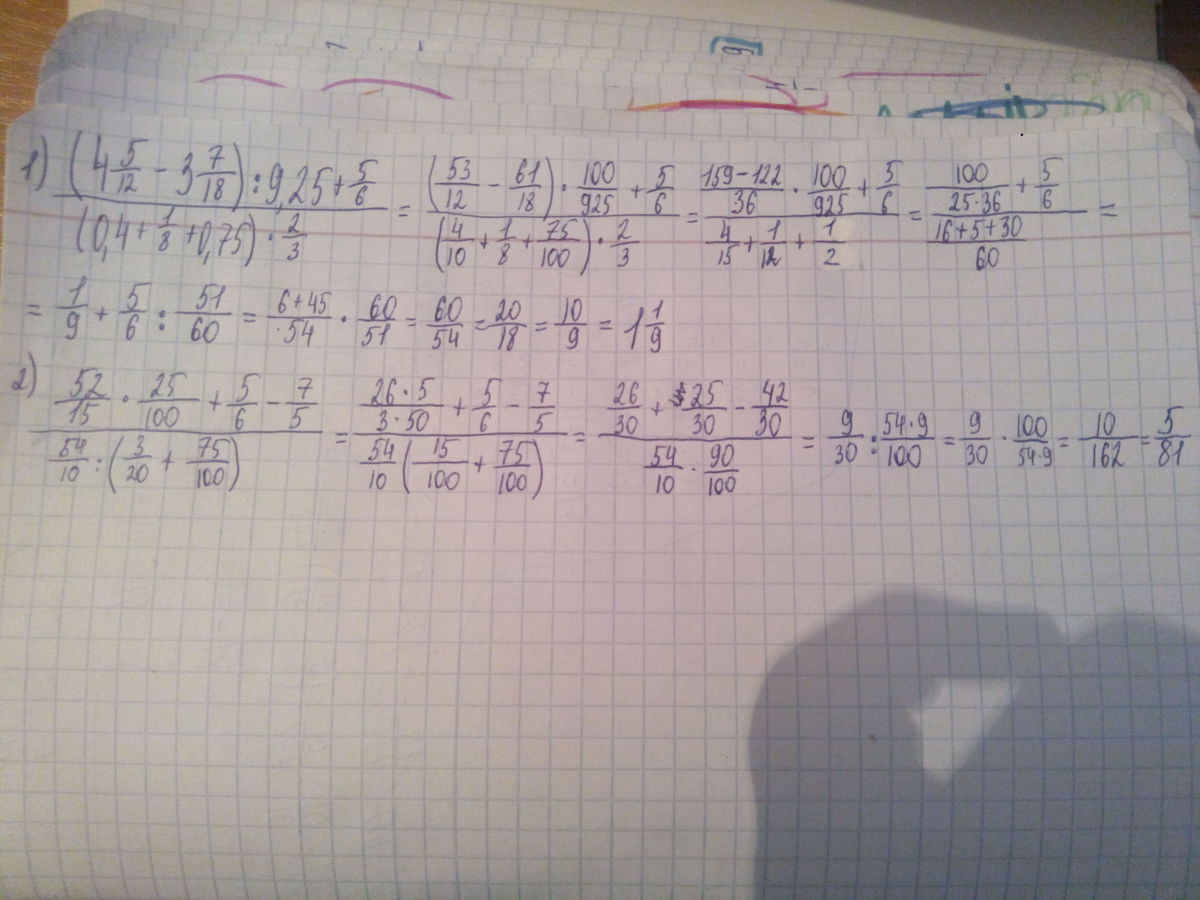 1) (4 5/12 − 3 7/18) : 9,25 + 5/6 / (0,4 + 1/8 + 0,75) · 2/3 = (53/12 − 61/18) · 100/925 + 5/6 / (4/10 + 1/8 + 75/100) · 2/3 = 159−122/36 · 100/925 + 5/6 / 4/15 + 1/12 + 1/2 = 100/25·36 + 5/6 / 16+5+30/60 =
= 1/9 + 5/6 : 51/60 = 6+45/·54 · 60/51 = 60/54 = 20/18 = 10/9 = 1 1/9
2) 52/15 · 25/100 + 5/6 − 7/5 / 54/10 : (3/20 + 75/100) = 26·5/3·50 + 5/6 − 7/5 / 54/10 (15/100 + 75/100) = 26/30 + 25/30 − 42/30 / 54/10 · 90/100 = 9/30 : 54·9/100 = 9/30 · 100/54·9 = 10/162 = 5/81